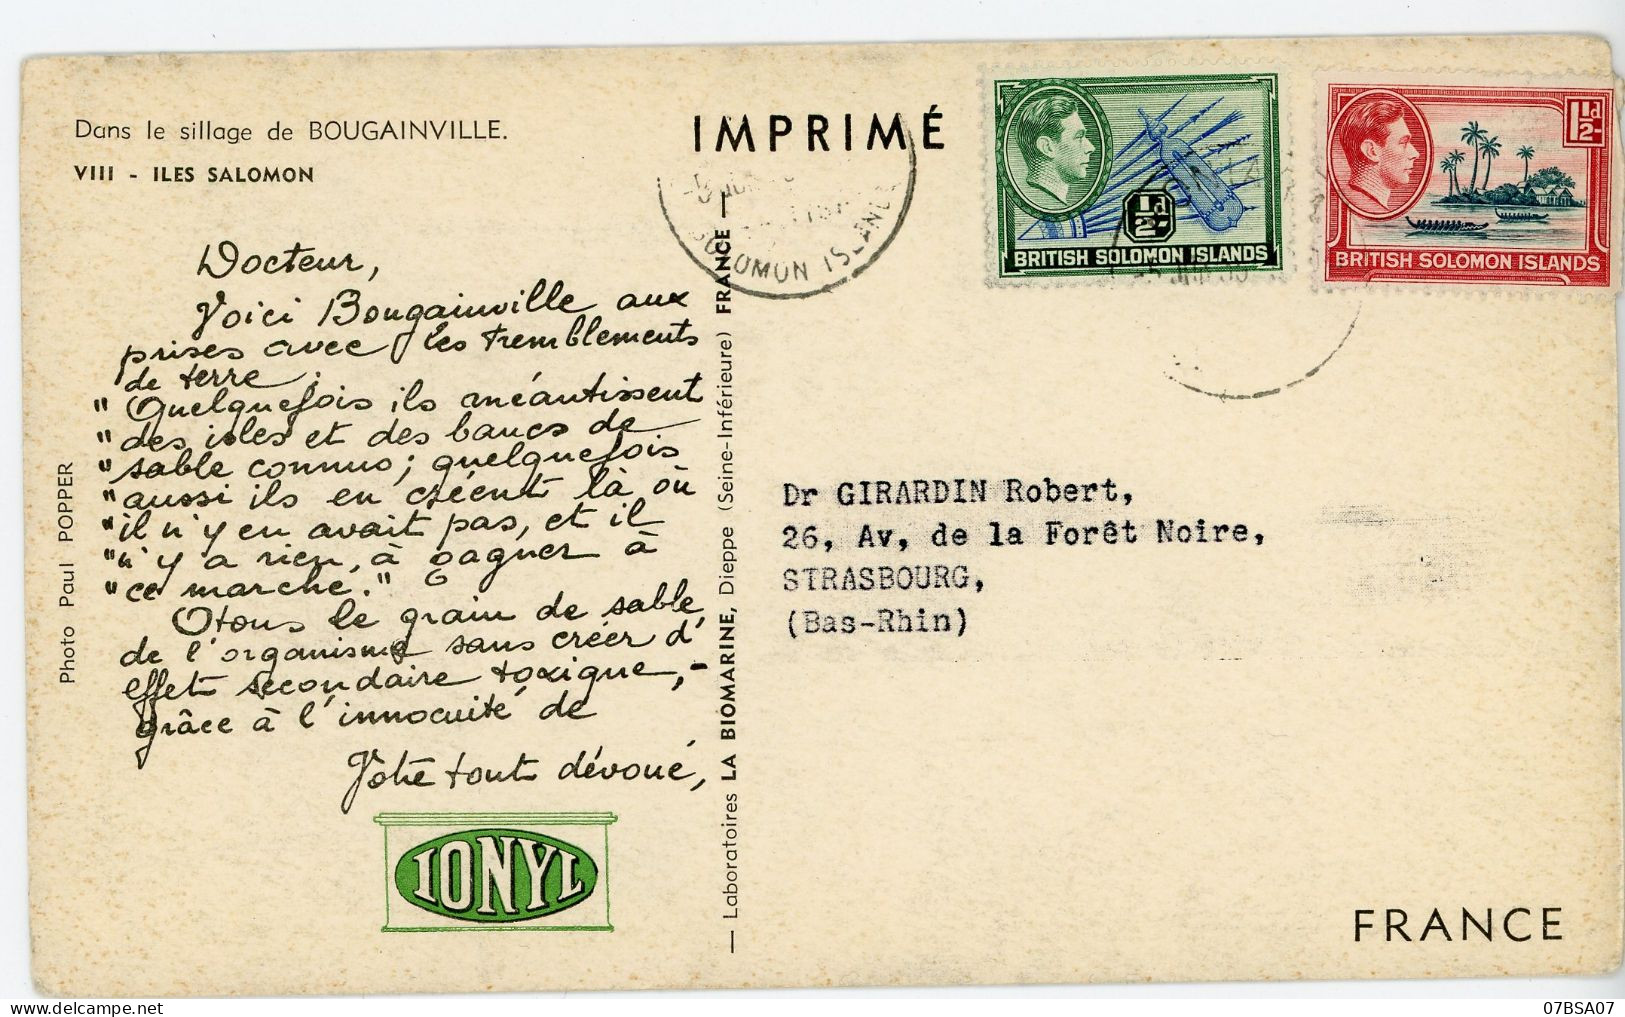 Dans le sillage de BOUGAINVILLE.
VIII - ILES SALOMON
IMPRIMÉ
½d
BRITISH SOLOMON ISLANDS
1½d
BRITISH SOLOMON ISLANDS
SOLOMON ISLANDS
Docteur,
Voici Bougainville aux
prises avec les tremblements
de terre :
"Quelquefois ils anéantissent
"des isles et des bancs de
"sable connus; quelquefois
"aussi ils en créent là où
"il n'y en avait pas, et il
"n'y a rien, à gagner à
"ce marche."
Otons le grain de sable
de l'organisme sans créer d'
effet secondaire toxique, -
grâce à l'innocuité de
Votre tout dévoué,
IONYL
Photo Paul POPPER
— Laboratoires LA BIOMARINE, Dieppe (Seine-Inférieure) FRANCE —
Dr GIRARDIN Robert,
26, Av, de la Forêt Noire,
STRASBOURG,
(Bas-Rhin)
FRANCE
07BSA07